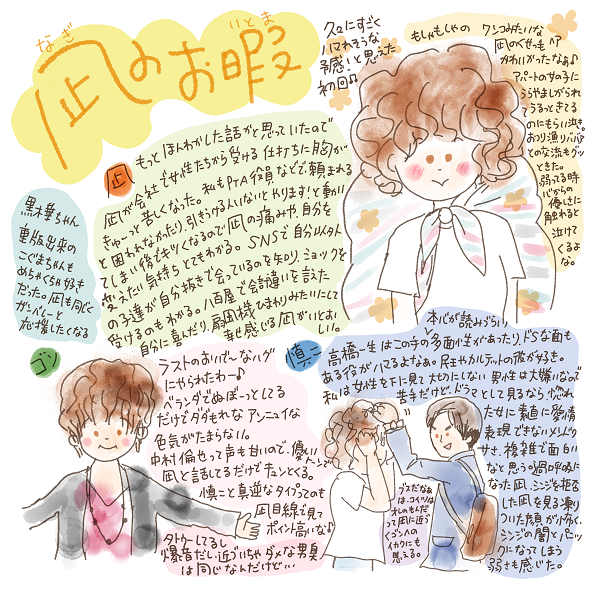 なぎ
いとま
凪のお暇
久々にすごく
ハマれそうな
予感いと思えた
初回♪
もしゃもしゃの ワンコみたいな
凪のくせっ毛ヘア
かわいかったなぁ♪
アパートの女の子に
うらやましがられ
てうるっときてる
のにもらい泣き。
おつり漁りババア
との交流もグッ
ときた。
弱ってる時
だからの
優しさに
触れると
泣けて
くるよ
な。
凪
もっとほんわかした話かと思っていたので
凪が会社で女性たちから受ける仕打ちに胸が
きゅーっと苦しくなった。私もPTA役員などで頼まれる
と困れなかったり、引き受ける人いないとやります!と動い
てしまい後でキツくなるので凪の痛みや、自分を
変えたい気持ちとてもわかる。SNSで自分以外
の子達が自分抜きで会っているのを知り、ショックを
受けるのもわかる。八百屋で会計違いを訂えた
自分に喜んだり、扇風機ひまわりみたいにして
幸せ感じる凪がいとおしい。
黒木華ちゃん
重版出来の
こぐまちゃんも
めちゃくちゃ好き
だった。凪も同じく
ガンバレーと
応援したくなる
ゴン
ラストのおいでしなハグ
にやられたわー♪
ベランダでぬぼーっとしてる
だけでダダもれなアンニュイな
色気がたまらない。
中村倫也って声も甘いので、優しいトーンで
凪と話してるだけでキュンとくる。
慎二と真逆なタイプってのも
凪目線で見て
ポイント高いな♪
タトゥーしてるし
爆音だし近づいちゃダメな男臭
は同じなんだけど…
慎二
本心が読みづらい
高橋一生はこの手の多面性があったり、ドSな面も
ある役がハマるよなぁ。民王やカルテットの彼が好き。
私は女性を下に見て大切にしない男性は大嫌いなので
苦手だけど、ドラマとして見るなら、惚れ
た女に素直に愛情
表現できないメンドク
ササ、複雑で面白い
なと思う。過呼吸に
なった凪、シンジを拒否
した凪を見る凍り
ついた顔が小布く、
シンジの闇とパニッ
クになってしまう
弱さも感じた。
ブスだなぁ
は、コイツは
オレのもんだ
って凪に近づ
くゴンへの
イカクにも
思える。